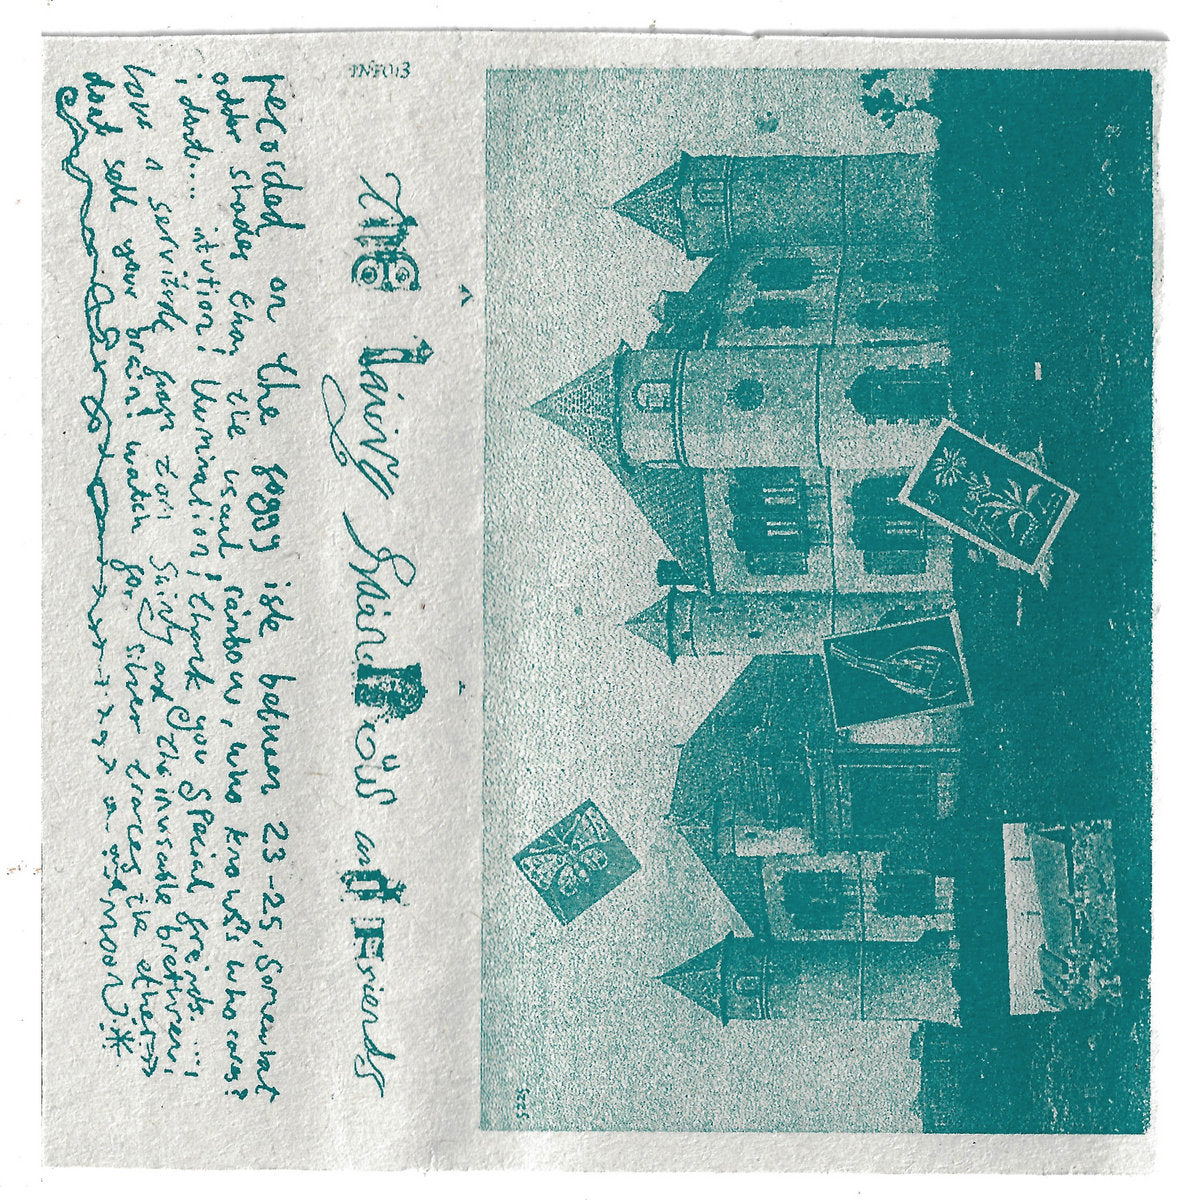 INFO13
The lairy RainBows and Friends
recorded on the foggy isle between 23-25, somewhat
odder shades than the usual rainbow, who knows who cares?
i dont..... intution! Ilumination! thank you special freinds....!
love n servitude from tom and the invisable brethren!
dont sell your brain! watch for silver traces in the ether
moon